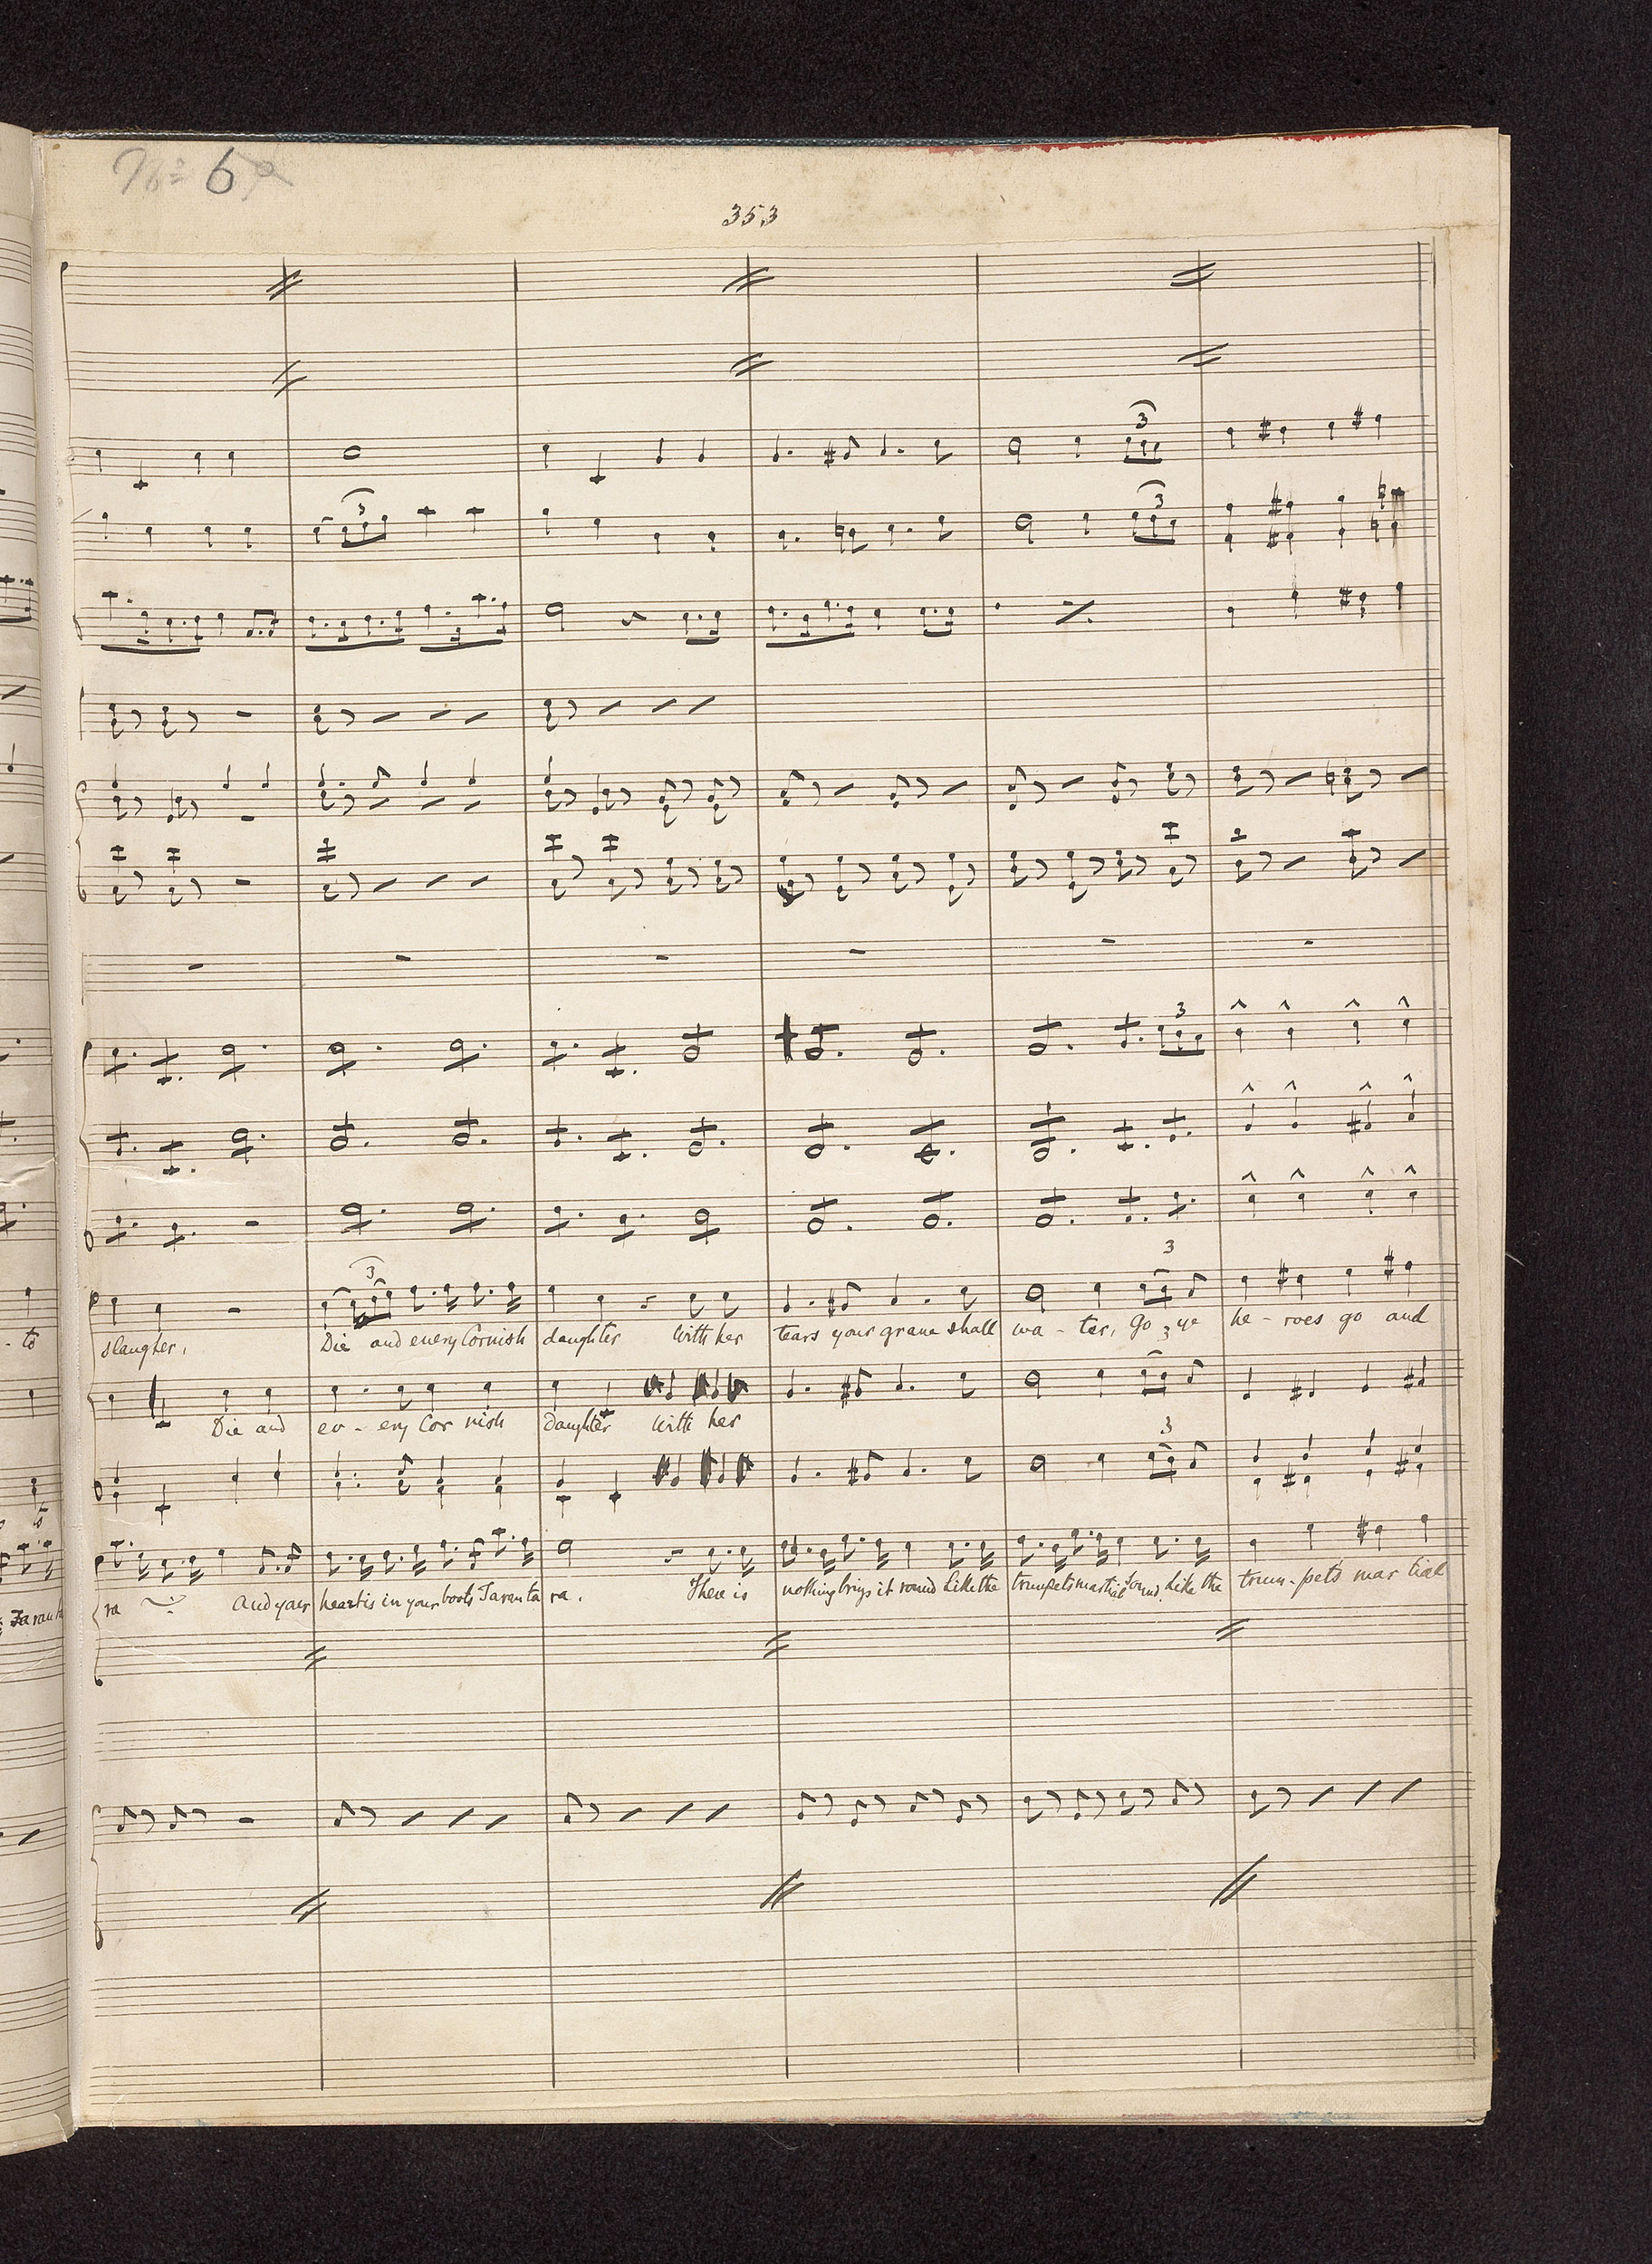 No 6
353
3
3
3
3
3
- to slaughter, Die and every Cornish daughter With her tears your grave shall wa - ter, Go, ye he - roes go and
Die and ev - ery Cor nish daughter With her
3
Taranta ra And your heart is in your boots Taran ta ra. There is nothing brings it round Like the trumpets martial sound, Like the trum - pets mar tial